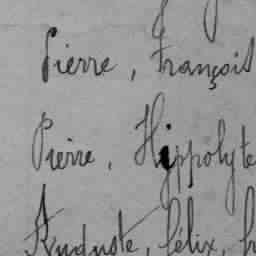 Pierre, François
Pierre, Hippolyte
Auguste, félix,